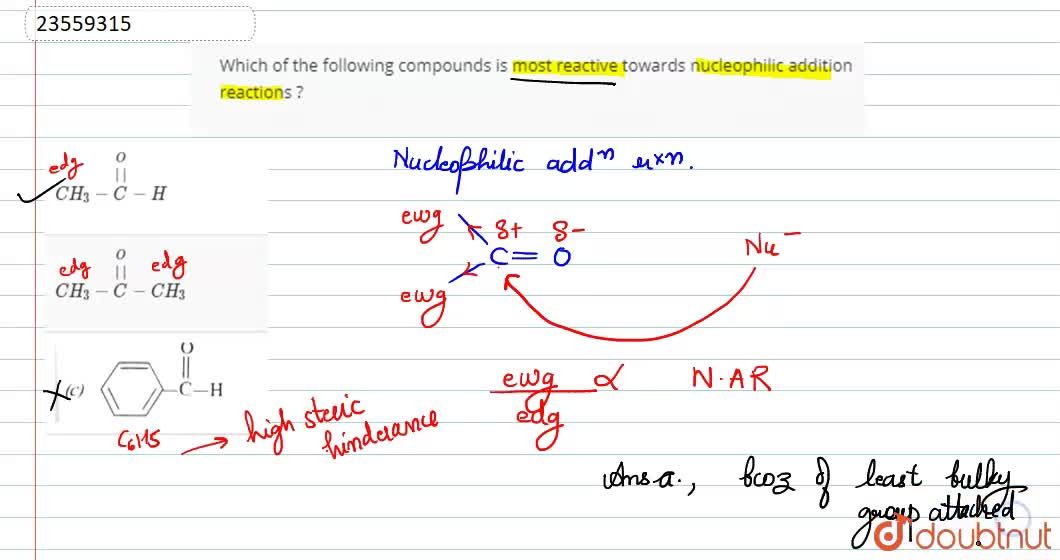 23559315
Which of the following compounds is most reactive towards nucleophilic addition
reactions ?
edg
O
||
CH₃ – C – H
edg O edg
||
CH₃ – C – CH₃
O
||
(c) C–H
C6H5
high steric
hinderance
Nucleophilic addⁿ rxn.
ewg
δ+ δ−
C = O
ewg
Nu⁻
ewg ∝ N.AR
edg
Ans a., bcoz of least bulky
group attached
doubtnut